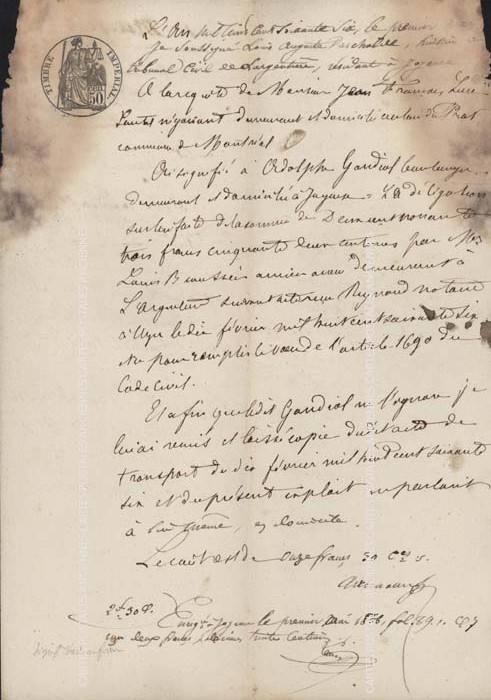 TIMBRE IMPÉRIAL
50
L'an mil huit cent soixante six, le premier
je soussigné Louis Auguste huissier
tribunal Civil de Largentière, résidant à Joyeuse
A la requête de Monsieur Jean François
négociant demeurant et domicilié au lieu du Prat
commune de Montréal
Ai signifié à Adolphe Gandiol boulanger
demeurant et domicilié à Joyeuse
sur lui faite de la somme de Deux cent nonante
trois francs cinquante deux centimes par Mr
Louis ancien avoué demeurant à
L'Argentière suivant acte reçu Reynaud notaire
à le dix février mil huit cent soixante six
et pour remplir le vœu de l'article 1690 du
Code Civil.
Et afin que ledit Gandiol n'ignore je
lui ai remis et laissé copie du dit acte de
transport du dix février mil huit cent soixante
six et du présent exploit en parlant
à lui même, en domicile.
Le coût est de onze francs 30 ces
2f 30c.
Enrg. à Joyeuse le premier mai 1866, fol. 39
deux francs trente centimes